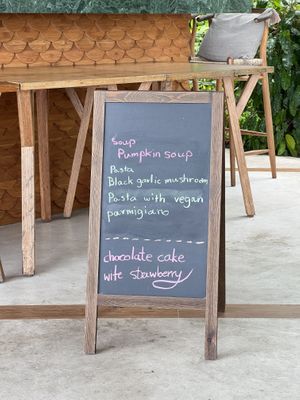 Soup
Pumpkin soup
Pasta
Black garlic mushroom
Pasta with vegan
parmigiano
chocolate cake
wife strawberry